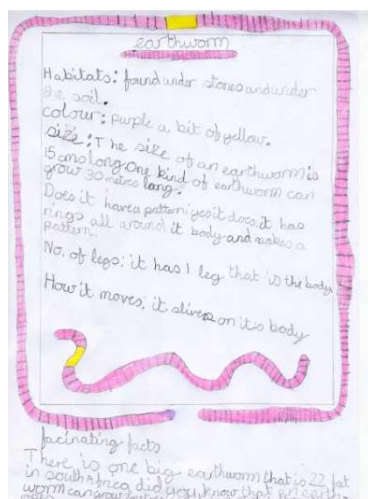 earthworm
Habitats: found under stones and under
the soil.
colour: purple a bit of yellow.
size: The size of an earthworm is
15 cms long. One kind of earthworm can
grow 30 metres long.
Does it have a pattern: yes it does. it has
rings all around it body and makes a
pattern.
No. of legs: it has 1 leg that is the body
How it moves. it slives on it's body
facinating facts
There is one big earthworm that is 22 fat
in south Africa did you know that an earth
worm can grow